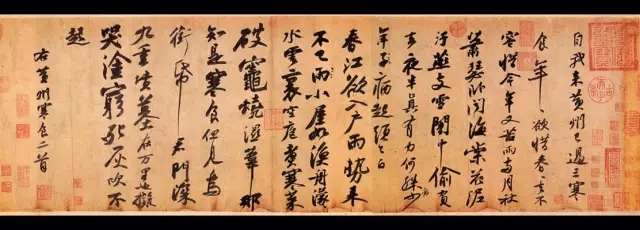 自我來黃州已過三寒
食年年欲惜春春去不
容惜今年又苦雨兩月秋
蕭瑟卧聞海棠花泥
汙燕支雪闇中偷負
去夜半真有力何殊少
年子病起頭已白
春江欲入户雨勢來
不已雨小屋如漁舟濛濛
水雲裏空庖煮寒菜
破竈燒濕葦那
知是寒食但見烏
銜帋君門深
九重墳墓在万里也擬
哭塗窮死灰吹不
起
右黃州寒食二首